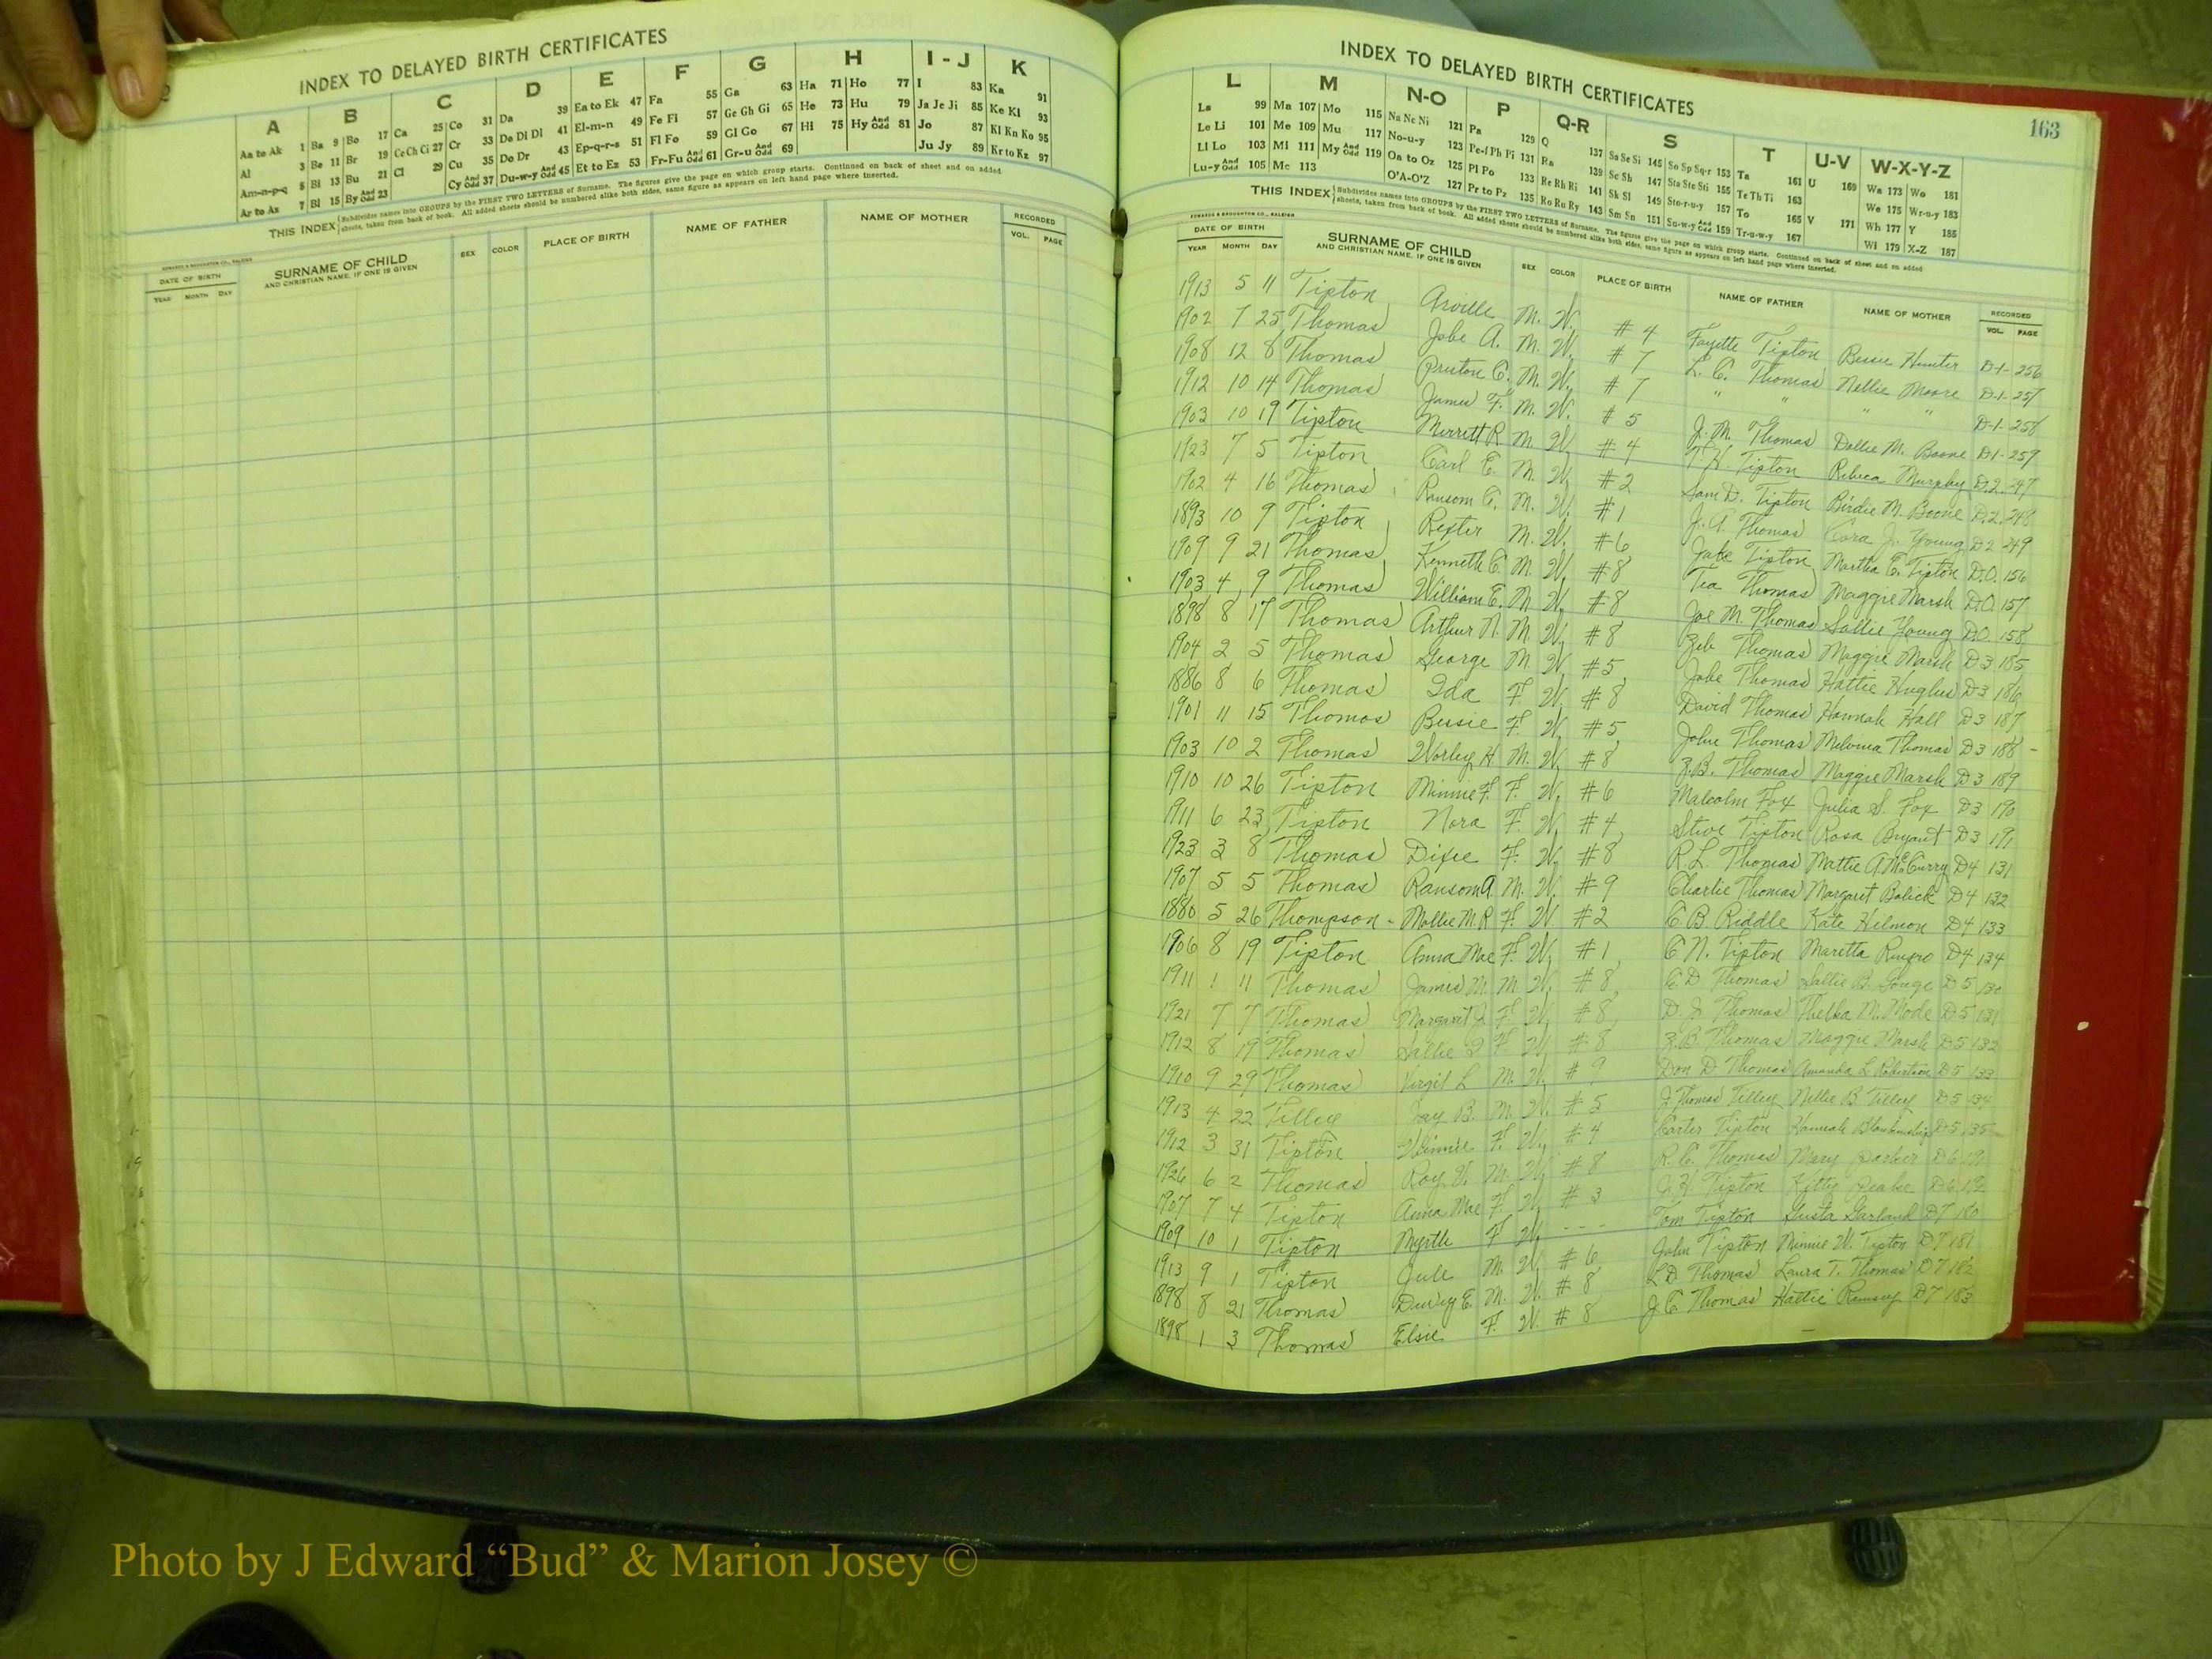 INDEX TO DELAYED BIRTH CERTIFICATES
A B C D E F G H I-J K
Aa to Ak 1 Ba 9 Bo 17 Ca 25 Co 31 Da 39 Ea to Ek 47 Fa 55 Ga 63 Ha 71 Ho 77 I 83 Ka 91
Al 3 Be 11 Br 19 Ce Ch Ci 27 Cr 33 De Di Dl 41 El-m-n 49 Fe Fi 57 Ge Gh Gi 65 He 73 Hu 79 Ja Je Ji 85 Ke Kl 93
Am-n-p-q 5 Bi 13 Bu 21 Cl 29 Cu 35 Do Dr 43 Ep-q-r-s 51 Fl Fo 59 Gl Go 67 Hi 75 Hy And Odd 81 Jo 87 Kl Kn Ko 95
Ar to Az 7 Bl 15 By And Odd 23 Cy And Odd 37 Du-w-y And Odd 45 Et to Ez 53 Fr-Fu And Odd 61 Gr-u And Odd 69 Ju Jy 89 Kr to Kz 97
THIS INDEX Subdivides names into GROUPS by the FIRST TWO LETTERS of Surname. The figures give the page on which group starts. Continued on back of sheet and on added
sheets, taken from back of book. All added sheets should be numbered alike both sides, same figure as appears on left hand page where inserted.
EDWARDS & BROUGHTON CO., RALEIGH
DATE OF BIRTH SURNAME OF CHILD SEX COLOR PLACE OF BIRTH NAME OF FATHER NAME OF MOTHER RECORDED
YEAR MONTH DAY AND CHRISTIAN NAME, IF ONE IS GIVEN VOL. PAGE
INDEX TO DELAYED BIRTH CERTIFICATES
163
L M N-O P Q-R S T U-V W-X-Y-Z
La 99 Ma 107 Mo 115 Na Ne Ni 121 Pa 129 Q 137 Sa Se Si 145 So Sp Sq-r 153 Ta 161 U 169 Wa 173 Wo 181
Le Li 101 Me 109 Mu 117 No-u-y 123 Pe-f Ph Pi 131 Ra 139 Sc Sh 147 Sta Ste Sti 155 Te Th Ti 163 We 175 Wr-u-y 183
Ll Lo 103 Mi 111 My And Odd 119 Oa to Oz 125 Pl Po 133 Re Rh Ri 141 Sk Sl 149 Sto-r-u-y 157 To 165 V 171 Wh 177 Y 185
Lu-y And Odd 105 Mc 113 O'A-O'Z 127 Pr to Pz 135 Ro Ru Ry 143 Sm Sn 151 Su-w-y And Odd 159 Tr-u-w-y 167 Wi 179 X-Z 187
THIS INDEX Subdivides names into GROUPS by the FIRST TWO LETTERS of Surname. The figures give the page on which group starts. Continued on back of sheet and on added
sheets, taken from back of book. All added sheets should be numbered alike both sides, same figure as appears on left hand page where inserted.
EDWARDS & BROUGHTON CO., RALEIGH
DATE OF BIRTH SURNAME OF CHILD SEX COLOR PLACE OF BIRTH NAME OF FATHER NAME OF MOTHER RECORDED
YEAR MONTH DAY AND CHRISTIAN NAME, IF ONE IS GIVEN VOL. PAGE
1913 5 11 Tipton Arville M. W. #4 Fayette Tipton Bessie Hunter D-1-256
1902 7 25 Thomas Jobe A. M. W. #7 L. C. Thomas Nellie Moore D-1-257
1908 12 8 Thomas Preston C. M. W. #7 " " " " D-1-258
1912 10 14 Thomas James F. M. W. #5 J. M. Thomas Dollie M. Boone D1-259
1903 10 19 Tipton Merritt R. M. W. #4 T. H. Tipton Rebeca Murphy D.2.247
1923 7 5 Tipton Carl E. M. W. #2 Sam D. Tipton Birdie M. Boone D.2.248
1902 4 16 Thomas Ransom C. M. W. #1 J. A. Thomas Cora J. Young D2 249
1893 10 9 Tipton Rexter M. W. #6 Jake Tipton Martha E. Tipton D.O. 156
1909 9 21 Thomas Kenneth C. M. W. #8 Tea Thomas Maggie Marsh D.O. 157
1903 4 9 Thomas William E. M. W. #8 Joe M. Thomas Sallie Young D.O. 158
1898 8 17 Thomas Arthur N. M. W. #8 Zeb Thomas Maggie Marsh D3 185
1904 2 5 Thomas George M. W. #5 Jobe Thomas Hattie Hughes D3 186
1886 8 6 Thomas Ida F. W. #8 David Thomas Hannah Hall D3 187
1901 11 15 Thomas Bessie F. W. #5 John Thomas Melvina Thomas D3 188
1903 10 2 Thomas Worley H. M. W. #8 Z.B. Thomas Maggie Marsh D3 189
1910 10 26 Tipton Minnie F. F. W. #6 Malcolm Fox Julia S. Fox D3 190
1911 6 23 Tipton Nora F. W. #4 Steve Tipton Rosa Bryant D3 191
1923 3 8 Thomas Dixie F. W. #8 R.L. Thomas Mattie A. McCurry D4 131
1907 5 5 Thomas Ransom A. M. W. #9 Charlie Thomas Margaret D4 132
1880 5 26 Thompson - Mollie M.R. F. W. #2 C. B. Riddle Kate Helmon D4 133
1906 8 19 Tipton Anna Mae F. W. #1 C. N. Tipton Maretta D4 134
1911 1 11 Thomas James M. M. W. #8 C. D Thomas Sallie B. Gouge D5 130
1921 7 7 Thomas Margaret F. W. #8 D. Thomas Thelba M. Mode D5 131
1912 8 19 Thomas Sallie F. W. #8 Z.B. Thomas Maggie Marsh D5 132
1910 9 29 Thomas Virgil L M. W. #9 Don D Thomas Amanda L Robertson D5 133
1913 4 22 Tilley Jay B. M. W. #5 J. Thomas Tilley Nellie B Tilley D5 134
1912 3 31 Tipton Winnie F. W. #4 Carter Tipton Hannah Blankenship D5 135
1926 6 2 Thomas Roy V. M. W. #8 R. C. Thomas Mary Barker D6 191
1907 7 4 Tipton Anna Mae F. W. #3 J. Tipton Kitty D6 192
1909 10 1 Tipton Myrtle F W. --- Tom Tipton Susta Garland D7 180
1913 9 1 Tipton Jule M. W. #6 John Tipton Minnie W. Tipton D7 181
1898 8 21 Thomas Dewey E. M. W. #8 L.D. Thomas Laura T. Thomas D7 182
1898 1 3 Thomas Elsie F. W. #8 J. C. Thomas Hattie Ramsey D7 183
Photo by J Edward “Bud” & Marion Josey ©